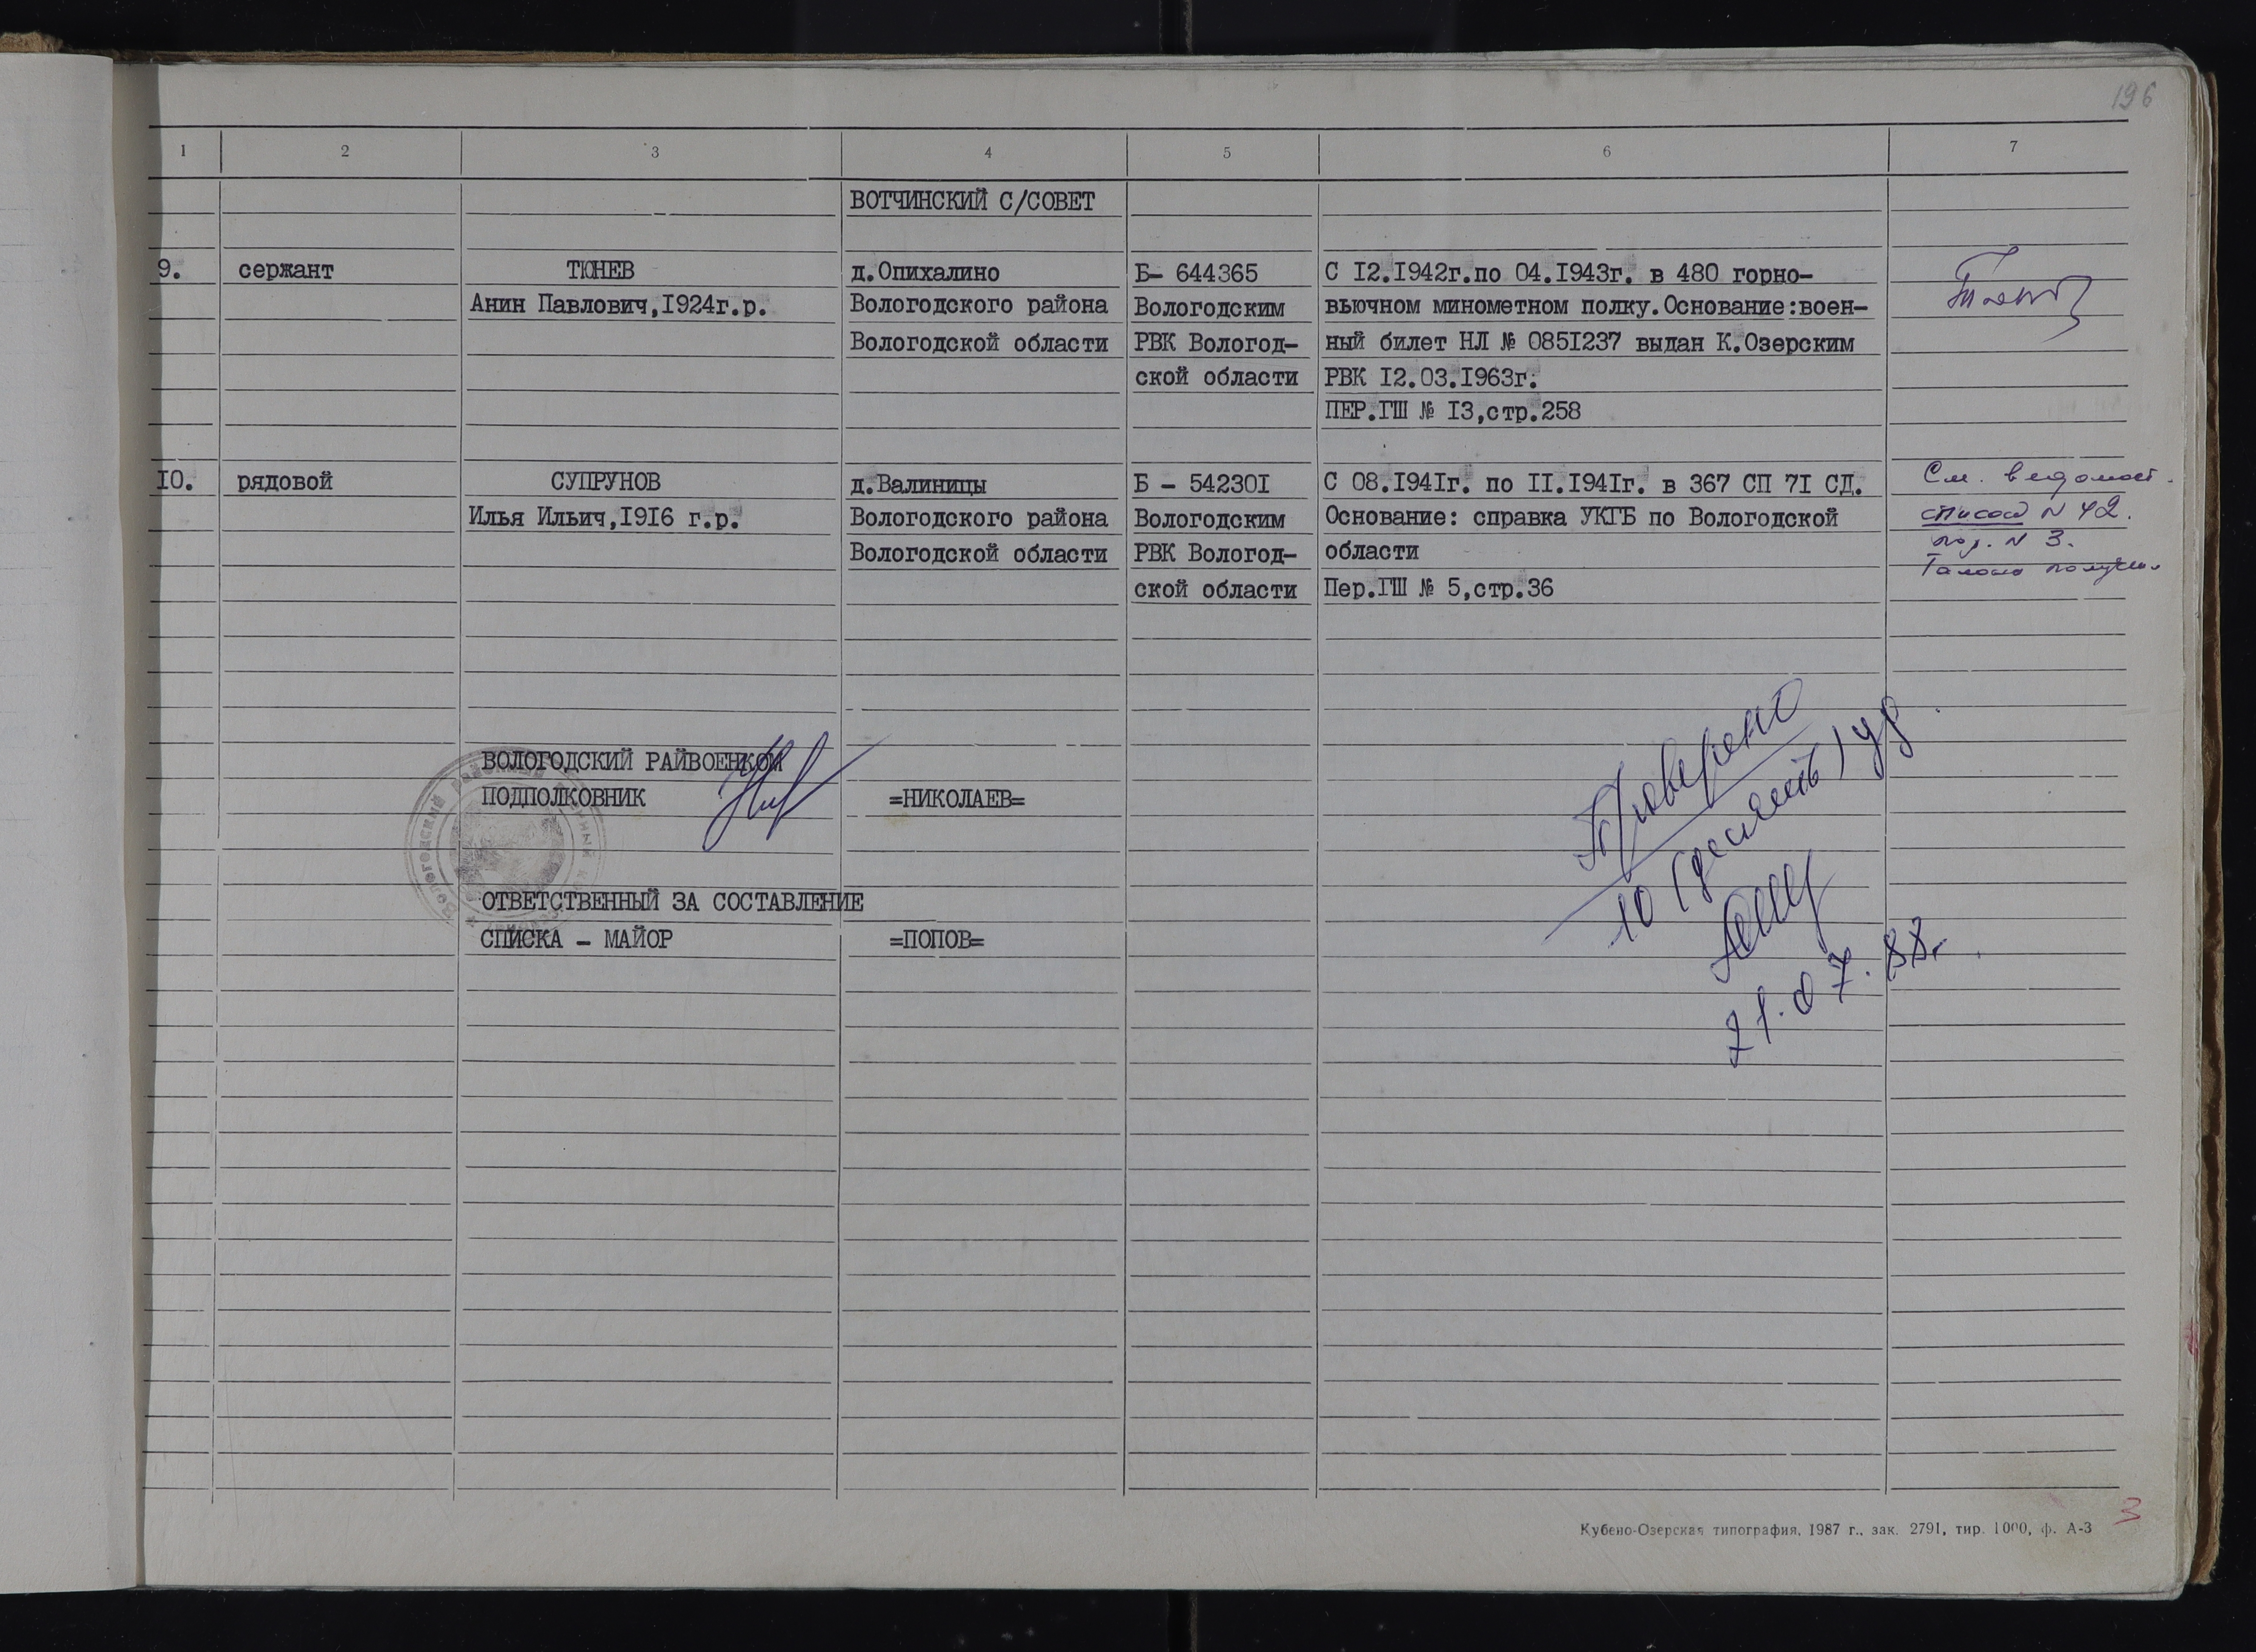 196
1 2 3 4 5 6 7
ВОТЧИНСКИЙ С/СОВЕТ
9. сержант ТЮНЕВ д.Опихалино Б- 644365 С I2.I942г.по 04.I943г. в 480 горно-
Анин Павлович,I924г.р. Вологодского района Вологодским вьючном минометном полку.Основание:воен-
Вологодской области РВК Вологод- ный билет НЛ № 085I237 выдан К.Озерским
ской области РВК I2.03.I963г.
ПЕР.ГШ № I3,стр.258
I0. рядовой СУПРУНОВ д.Валиницы Б - 54230I С 08.I94Iг. по II.I94Iг. в 367 СП 7I СД. См. ведомост.
Илья Ильич,I9I6 г.р. Вологодского района Вологодским Основание: справка УКГБ по Вологодской список N 42.
Вологодской области РВК Вологод- области поз. N 3.
ской области Пер.ГШ № 5,стр.36
ВОЛОГОДСКИЙ РАЙВОЕНКОМ
ПОДПОЛКОВНИК =НИКОЛАЕВ=
ОТВЕТСТВЕННЫЙ ЗА СОСТАВЛЕНИЕ
СПИСКА - МАЙОР =ПОПОВ=
Проверено
10 (десять) уд
21.07.88г.
Кубено-Озерская типография, 1987 г., зак. 2791, тир. 1000, ф. А-3
3